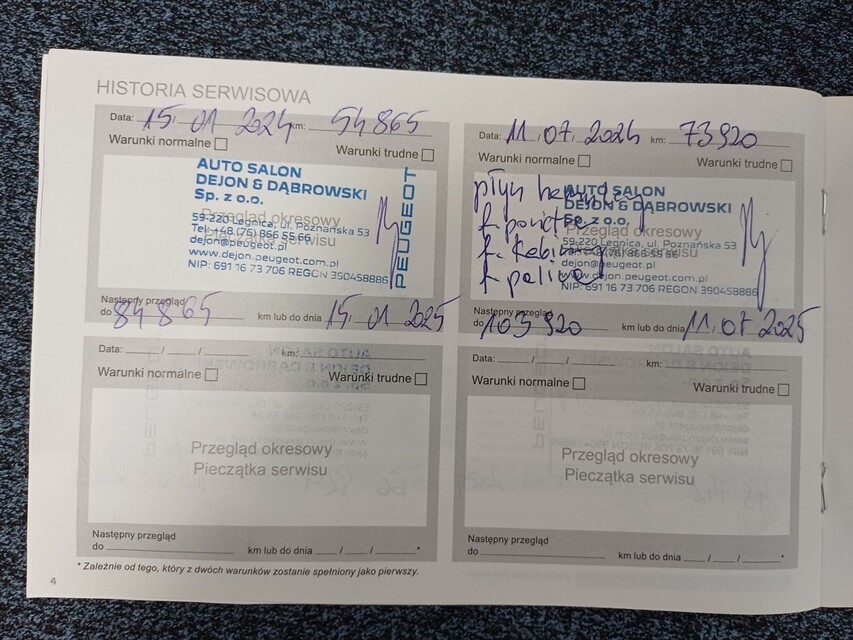 HISTORIA SERWISOWA
Data: 15.01 2024 km: 54865
Warunki normalne
Warunki trudne
AUTO SALON
DEJON & DĄBROWSKI
Sp. z o.o.
Przegląd okresowy
59-220 Legnica, ul. Poznańska 53
Pieczątka serwisu
Tel. +48 (76) 866 55 66
dejon@peugeot.pl
www.dejon.peugeot.com.pl
NIP: 691 16 73 706 REGON 390458886
PEUGEOT
Następny przegląd
do 84865 km lub do dnia 15.01 2025
Data: 11.07.2024 km: 73920
Warunki normalne
Warunki trudne
płyn
AUTO SALON
DEJON & DĄBROWSKI
Sp. z o.o.
Przegląd okresowy
f. kabinowy
59-220 Legnica, ul. Poznańska 53
866 55 66
dejon@peugeot.pl
f. paliwa
www.dejon.peugeot.com.pl
NIP: 691 16 73 706 REGON 390458886
Następny przegląd
do 103920 km lub do dnia 11.07 2025
Data: / / km:
Warunki normalne
Warunki trudne
Przegląd okresowy
Pieczątka serwisu
Następny przegląd
do km lub do dnia / / *
Data: / / km:
Warunki normalne
Warunki trudne
Przegląd okresowy
Pieczątka serwisu
Następny przegląd
do km lub do dnia / / *
* Zależnie od tego, który z dwóch warunków zostanie spełniony jako pierwszy.
4